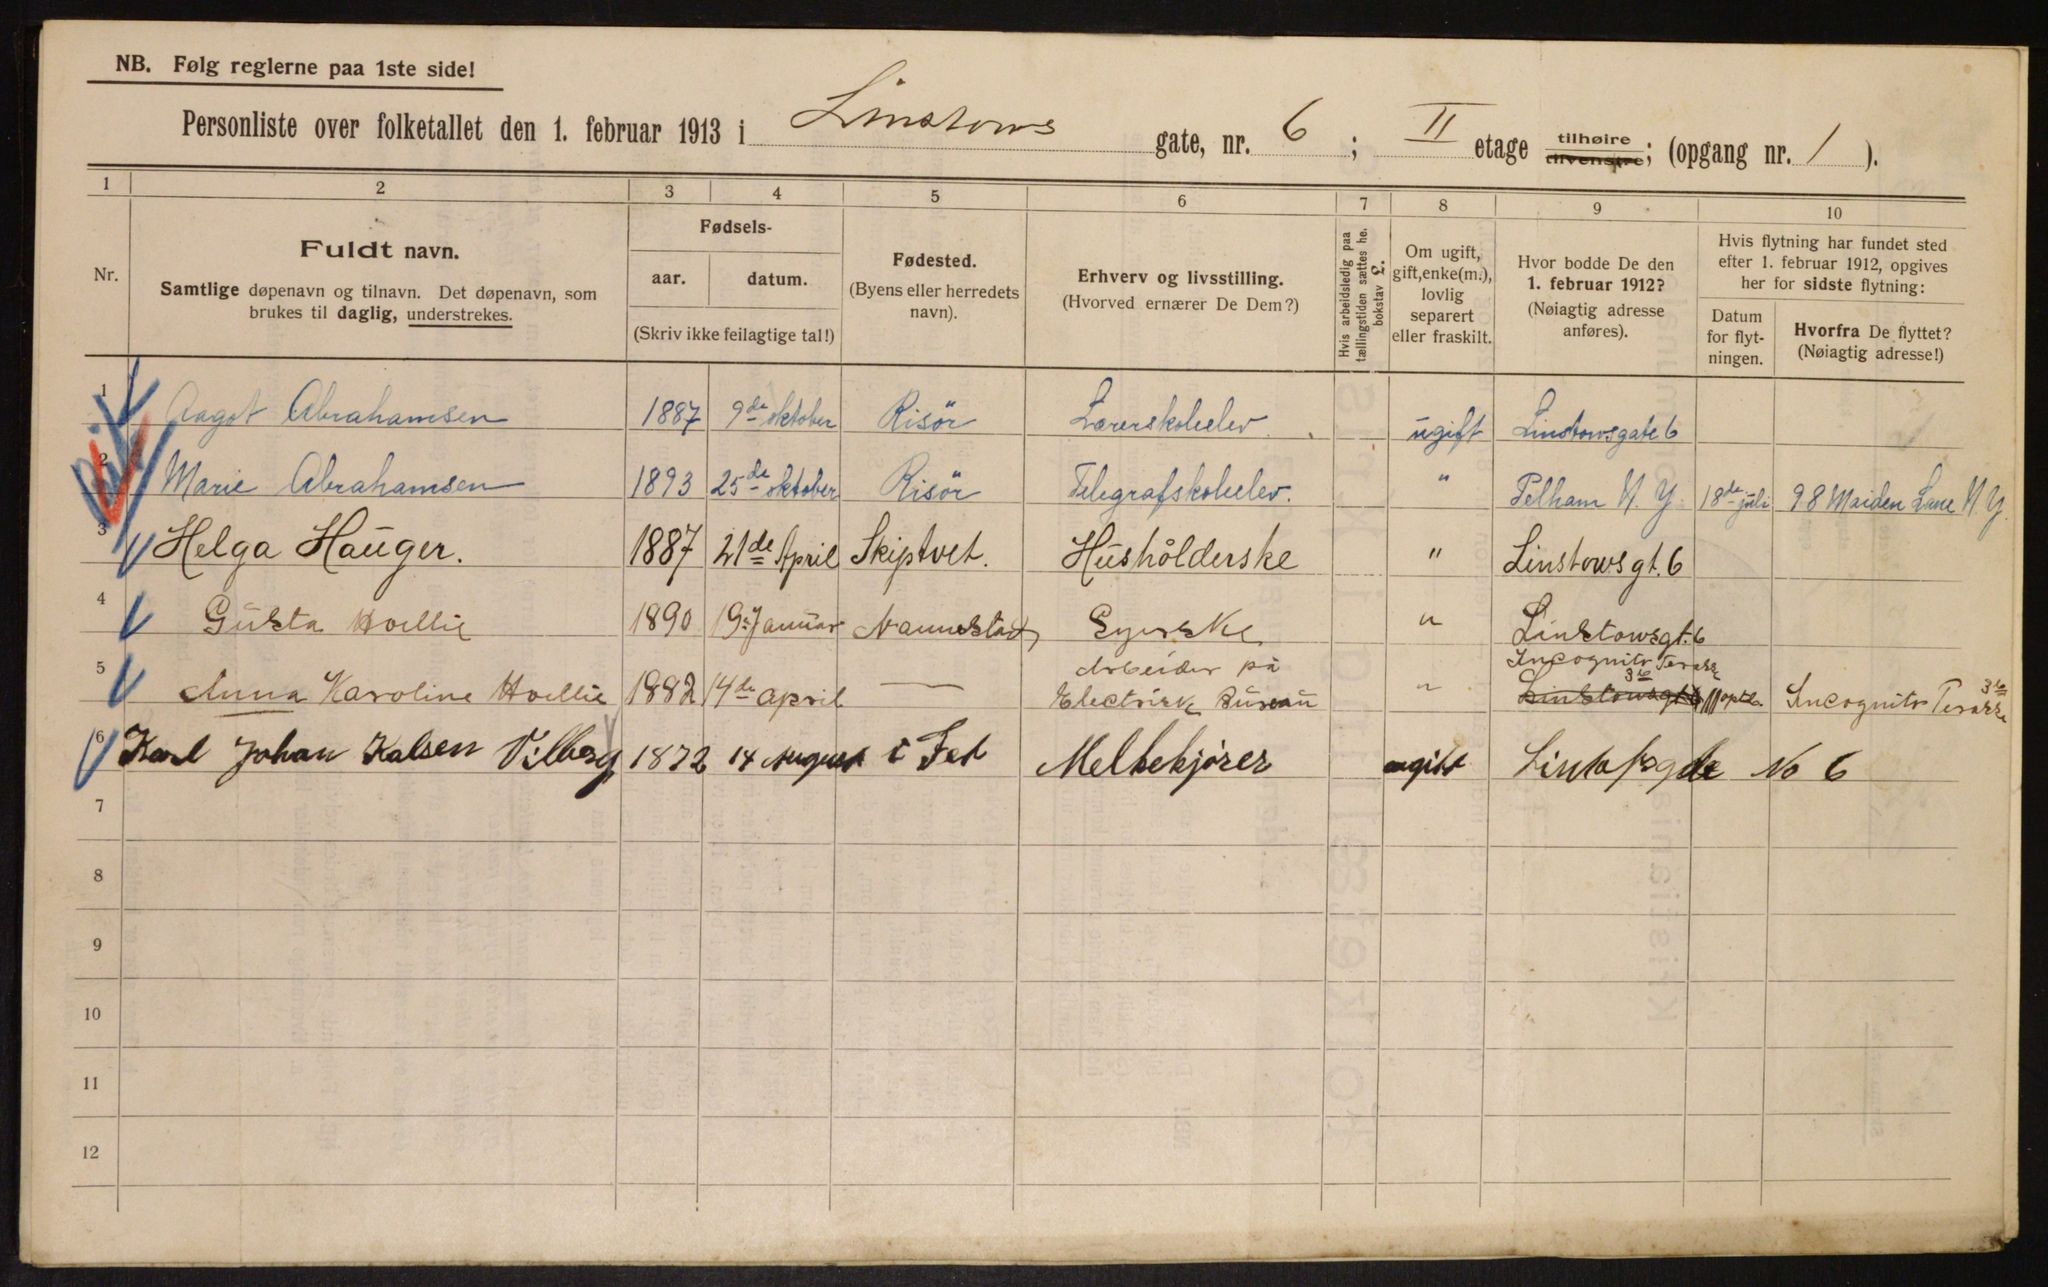 NB. Følg reglerne paa 1ste side!
Personliste over folketallet den 1. februar 1913 i Linstows gate, nr. 6; II etage tilhøire tilvenstre; (opgang nr. 1).
1 2 3 4 5 6 7 8 9 10
Nr.
Fuldt navn.
Samtlige døpenavn og tilnavn. Det døpenavn, som
brukes til daglig, understrekes.
Fødsels-
aar. datum.
(Skriv ikke feilagtige tal!)
Fødested.
(Byens eller herredets
navn).
Erhverv og livsstilling.
(Hvorved ernærer De Dem?)
Hvis arbeidsledig paa
tællingstiden sættes he.
bokstav L.
Om ugift,
gift, enke(m.),
lovlig
separert
eller fraskilt.
Hvor bodde De den
1. februar 1912?
(Nøiagtig adresse
anføres).
Hvis flytning har fundet sted
efter 1. februar 1912, opgives
her for sidste flytning:
Datum
for flyt-
ningen.
Hvorfra De flyttet?
(Nøiagtig adresse!)
1 Aagot Abrahamsen 1887 9de oktober Risör Lærerskoleelev ugift Linstowsgate 6
2 Marie Abrahamsen 1893 25de oktober Risör Telegrafskoleelev. " Pelham N.Y. 18de juli 98 Maiden Lane N.Y.
3 Helga Hauger. 1887 21de April Skiptvet. Husholderske " Linstows gt. 6
4 Gusta Hvellie 1890 19. Januar Nannestad Syerske " Linstowsgt. 6
5 Anna Karoline Hvellie 1882 14de april — Arbeider på Electrisk Bureau " Incognito Terasse 36 Linstowsgt 6 Incognito Terasse 36
6 Karl Johan Kalsen Vilberg 1872 14 August i Fet Melkekjører ugift No 6
7
8
9
10
11
12